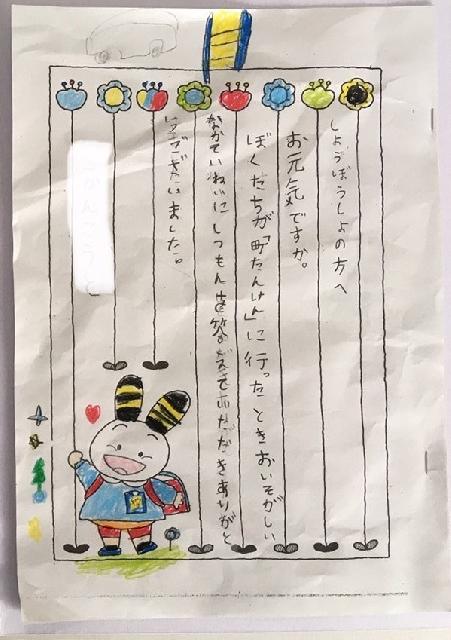 しょうぼうしょの方へ
お元気ですか。
ぼくたちが「町たんけん」に行ったときおいそがしい
なかていねいにしつもん答いただきありがと
うございました。